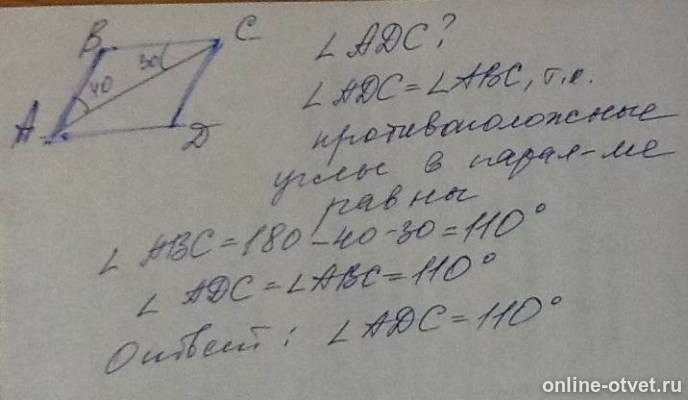 B C
30
40
A D
∠ ADC?
∠ ADC = ∠ ABC, т.к.
противоположные
углы в парал-ме
равны
∠ ABC = 180 - 40 - 30 = 110°
∠ ADC = ∠ ABC = 110°
Ответ: ∠ ADC = 110°
online-otvet.ru